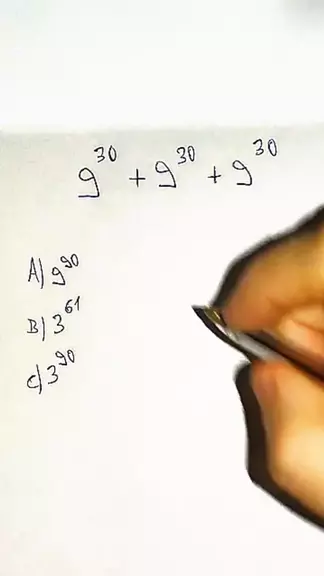 9³⁰ + 9³⁰ + 9³⁰
A) 9⁹⁰
B) 3⁶¹
C) 3⁹⁰